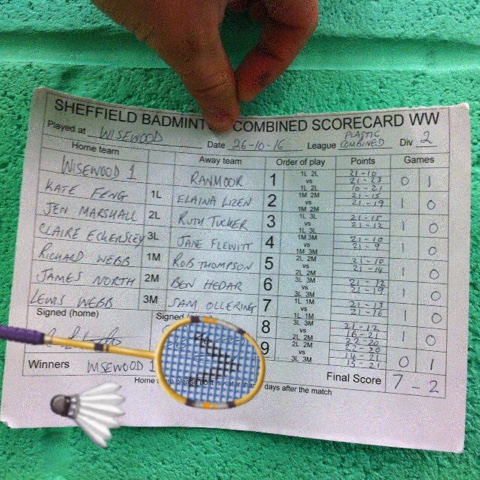 SHEFFIELD BADMINT COMBINED SCORECARD WW
Played at WISEWOOD Date 26-10-16 League PLASTIC COMBINED Div 2
Home team Away team Order of play Points Games
WISEWOOD 1 RANMOOR 1 1L 2L vs 1L 2L 21-10 21-23 10-21 0 1
KATE FENG 1L ELAINA LIZEN 2 1M 2M vs 1M 2M 21-15 21-19 1 0
JEN MARSHALL 2L RUTH TUCKER 3 1L 3L vs 1L 3L 21-15 21-12 1 0
CLAIRE ECKERSLEY 3L JANE FLEWITT 4 1M 3M vs 1M 3M 21-10 21-9 1 0
RICHARD WEBB 1M ROB THOMPSON 5 2L 2M vs 2L 2M 21-10 21-14 1 0
JAMES NORTH 2M BEN HEDAR 6 3L 3M vs 3L 3M 21-12 21-19 1 0
LEWIS WEBB 3M SAM OLLERING 7 1L 1M vs 1L 1M 21-13 21-16 1 0
Signed (home) Signed 8 2L 3M vs 2L 2M 21-12 16-21 1 0
9 vs 3L 3M 15-21 0 1
Winners WISEWOOD 1 Final Score 7-2
Home days after the match